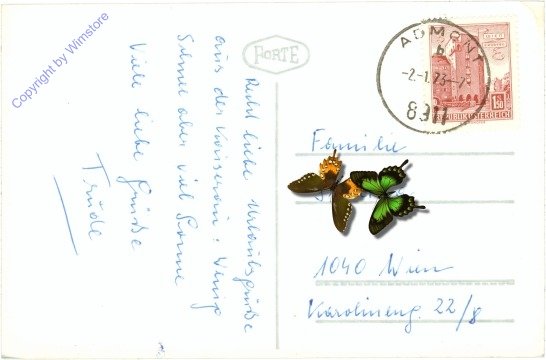 Copyright by Wimstore
FORTE
Recht liebe Urlaubsgrüße
aus der Kaiserau! Wenig
Schnee aber viel Sonne
Viele liebe Grüße
Trude
ADMONT
-2.-1.73-7
8911
1.50
REPUBLIK ÖSTERREICH
Familie
1040 Wien
Karolineng. 22/8